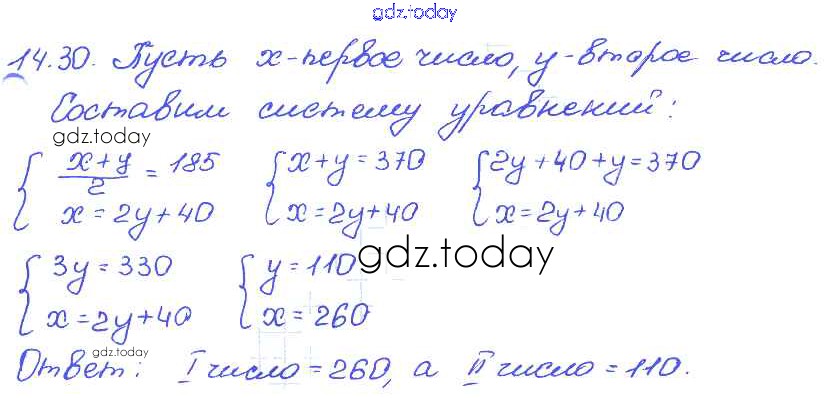 gdz.today
14.30. Пусть x-первое число, y-второе число.
Составим систему уравнений:
gdz.today
{ (x+y)/2 = 185 { x+y=370 { 2y+40+y=370
x=2y+40 x=2y+40 x=2y+40
{ 3y=330 { y=110 gdz.today
x=2y+40 x=260
gdz.today
Ответ: I число=260, а II число=110.